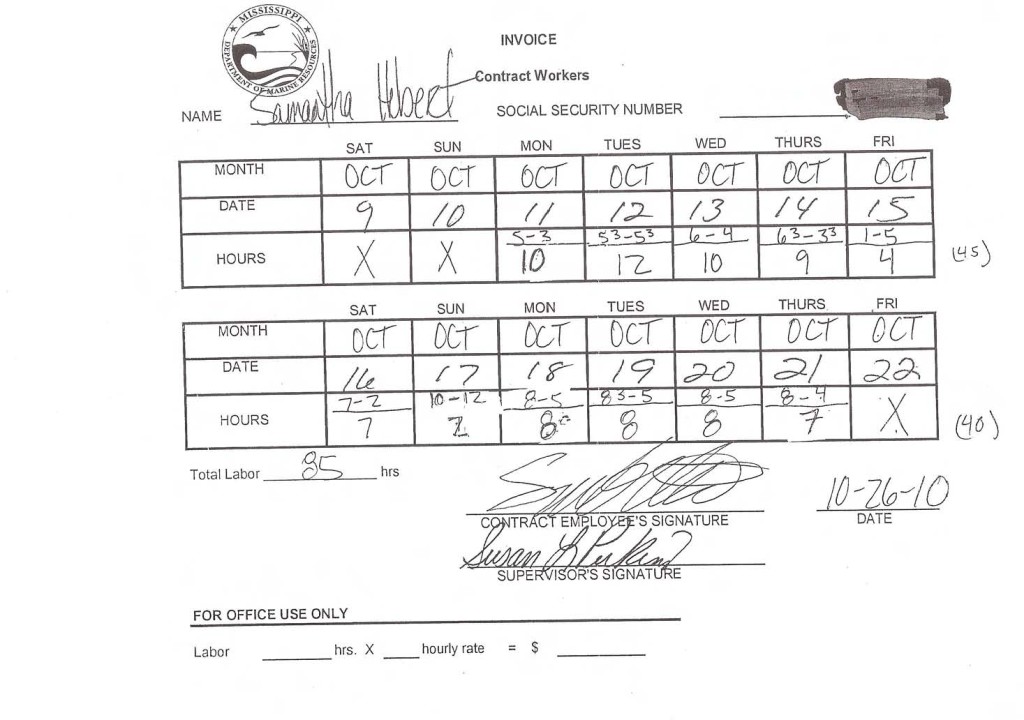 MISSISSIPPI
DEPARTMENT OF MARINE RESOURCES
INVOICE
Contract Workers
NAME Samantha Hebert SOCIAL SECURITY NUMBER
SAT SUN MON TUES WED THURS FRI
MONTH OCT OCT OCT OCT OCT OCT OCT
DATE 9 10 11 12 13 14 15
5-3 5³-5³ 6-4 6³-3³ 1-5
HOURS X X 10 12 10 9 4 (45)
SAT SUN MON TUES WED THURS FRI
MONTH OCT OCT OCT OCT OCT OCT OCT
DATE 16 17 18 19 20 21 22
7-2 10-12 8-5 8³-5 8-5 8-4
HOURS 7 2 8 8 8 7 X (40)
Total Labor 85 hrs
10-26-10
CONTRACT EMPLOYEE'S SIGNATURE DATE
Susan L Perkins
SUPERVISOR'S SIGNATURE
FOR OFFICE USE ONLY
Labor hrs. X hourly rate = $